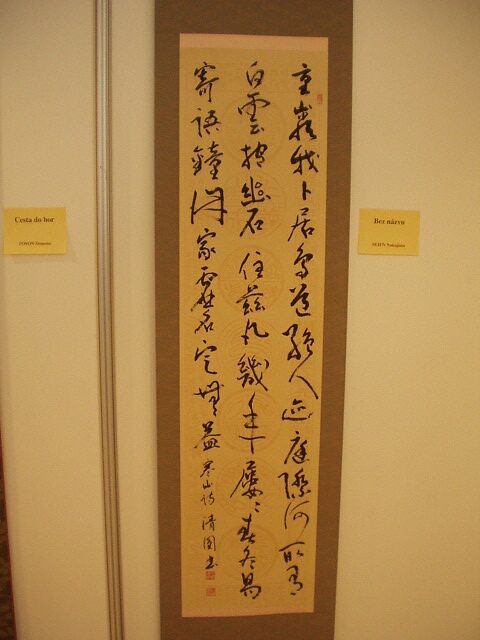 重巖我卜居鳥道絶人迹庭際何所有
白雲抱幽石住茲凡幾年屢見春冬易
寄語鐘鼎家虚名定無益寒山詩清園書
Cesta do hor
Bez názvu
SEIEN Nakajima